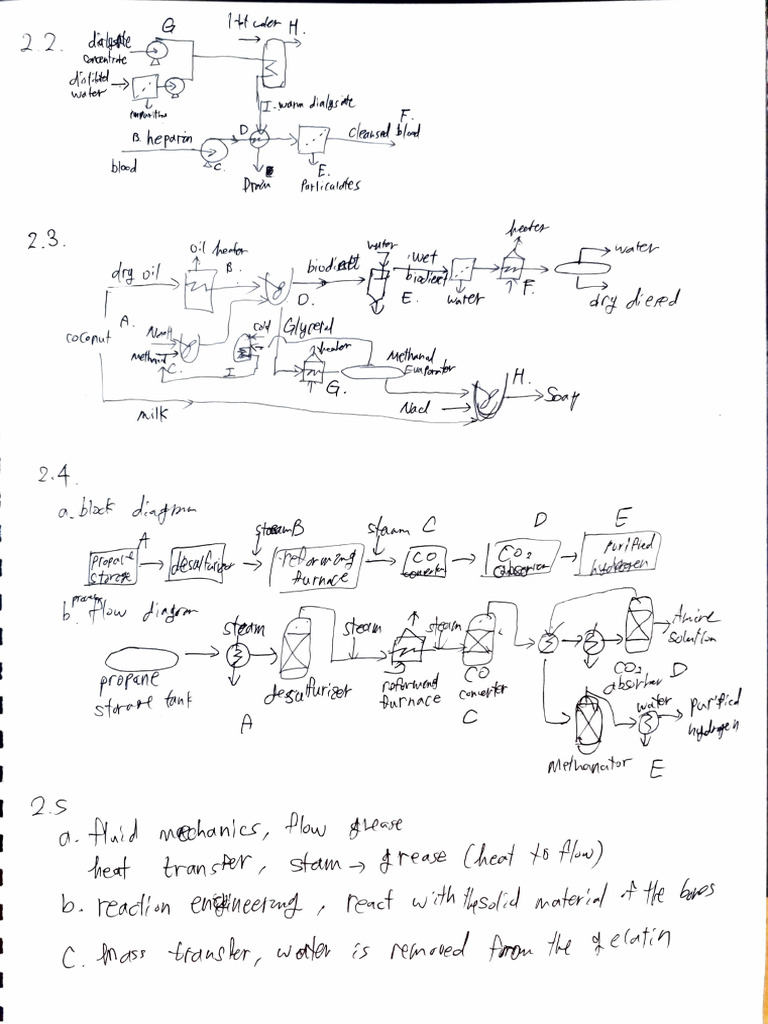 2.2.
G
H.
dialysate
concentrate
distilled
water
I. warm dialysate
B. heparin
D
F.
cleansed blood
blood
C.
Drain
E.
Particulates
2.3.
oil heater
heater
dry oil
B.
biodiesel
water
wet
biodiesel
water
D.
E.
water
F.
dry diesel
coconut
A.
NaOH
methanol
C.
cold
I
Glycerol
heater
G.
Methanol
Evaporator
NaCl
H.
Soap
milk
2.4
a. block diagram
A
steam B
steam C
D
E
propane
storage
desulfurizer
reforming
furnace
CO
converter
CO2
absorber
purified
hydrogen
b. process flow diagram
propane
storage tank
steam
desulfurizer
A
steam
furnace
steam
CO
converter
C
CO2
absorber D
Amine
solution
Methanator
water
E
purified
hydrogen
2.5
a. fluid mechanics, flow grease
heat transfer, stam → grease (heat to flow)
b. reaction engineering, react with the solid material of the bones
c. mass transfer, water is removed from the gelatin